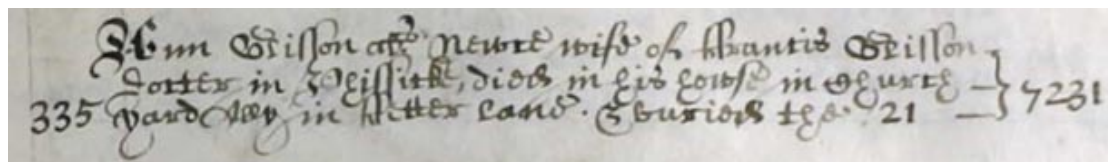 Ann Glisson als wife of ffrancis Glisson
docter in Phissick, died in his howse in Church
335 yard Ally in ffetter lane. Buried the 21 7231